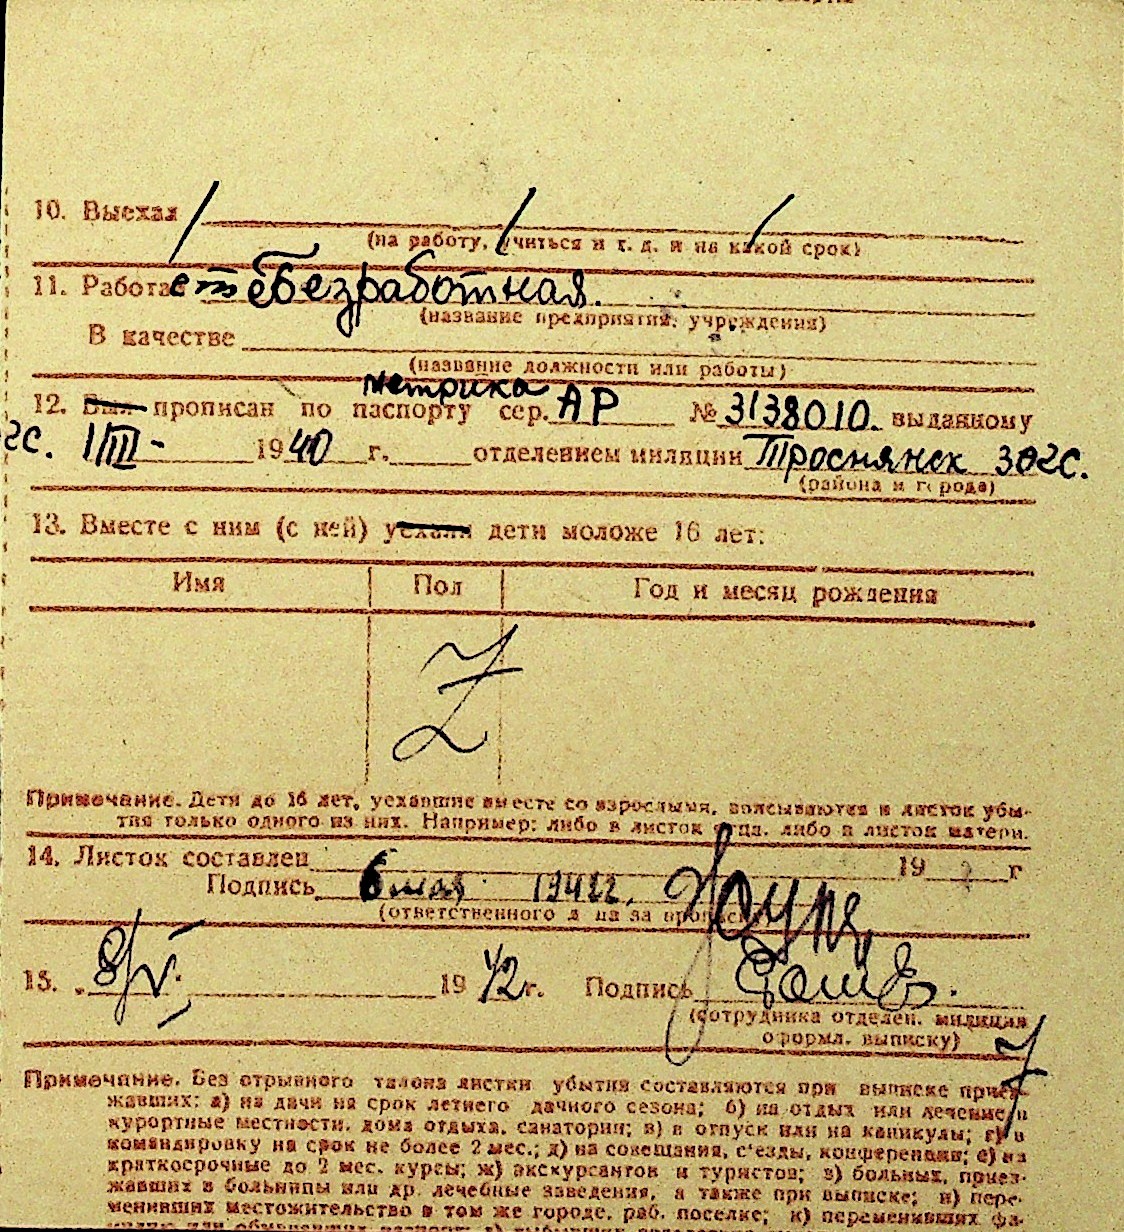 10. Выехал
(на работу, учиться и т. д. и на какой срок)
11. Работает Безработная.
(название предприятия, учреждения)
В качестве
(название должности или работы)
метрика
12. Был прописан по паспорту сер. АР № 3138010. выданному
1/III - 1940 г. отделением милиции Троснянск загс.
(района и города)
13. Вместе с ним (с ней) уехали дети моложе 16 лет:
Имя Пол Год и месяц рождения
Z
Примечание. Дети до 16 лет, уехавшие вместе со взрослыми, вписываются в листок убы-
тия только одного из них. Например: либо в листок отца, либо в листок матери.
14. Листок составлен 19 г
Подпись 6 мая 1942 г.
(ответственного лица за прописку)
15. 8/V. 1942 г. Подпись
(сотрудника отделен. милиции
оформл. выписку)
Примечание. Без отрывного талона листки убытия составляются при выписке приез-
жавших: а) на дачи на срок летнего дачного сезона; б) на отдых или лечение в
курортные местности, дома отдыха, санатории; в) в отпуск или на каникулы; г) в
командировку на срок не более 2 мес.; д) на совещания, с'езды, конференции; е) на
краткосрочные до 2 мес. курсы; ж) экскурсантов и туристов; з) больных, приез-
жавших в больницы или др. лечебные заведения, а также при выписке; и) пере-
менивших местожительство в том же городе, раб. поселке; к) переменивших фа-